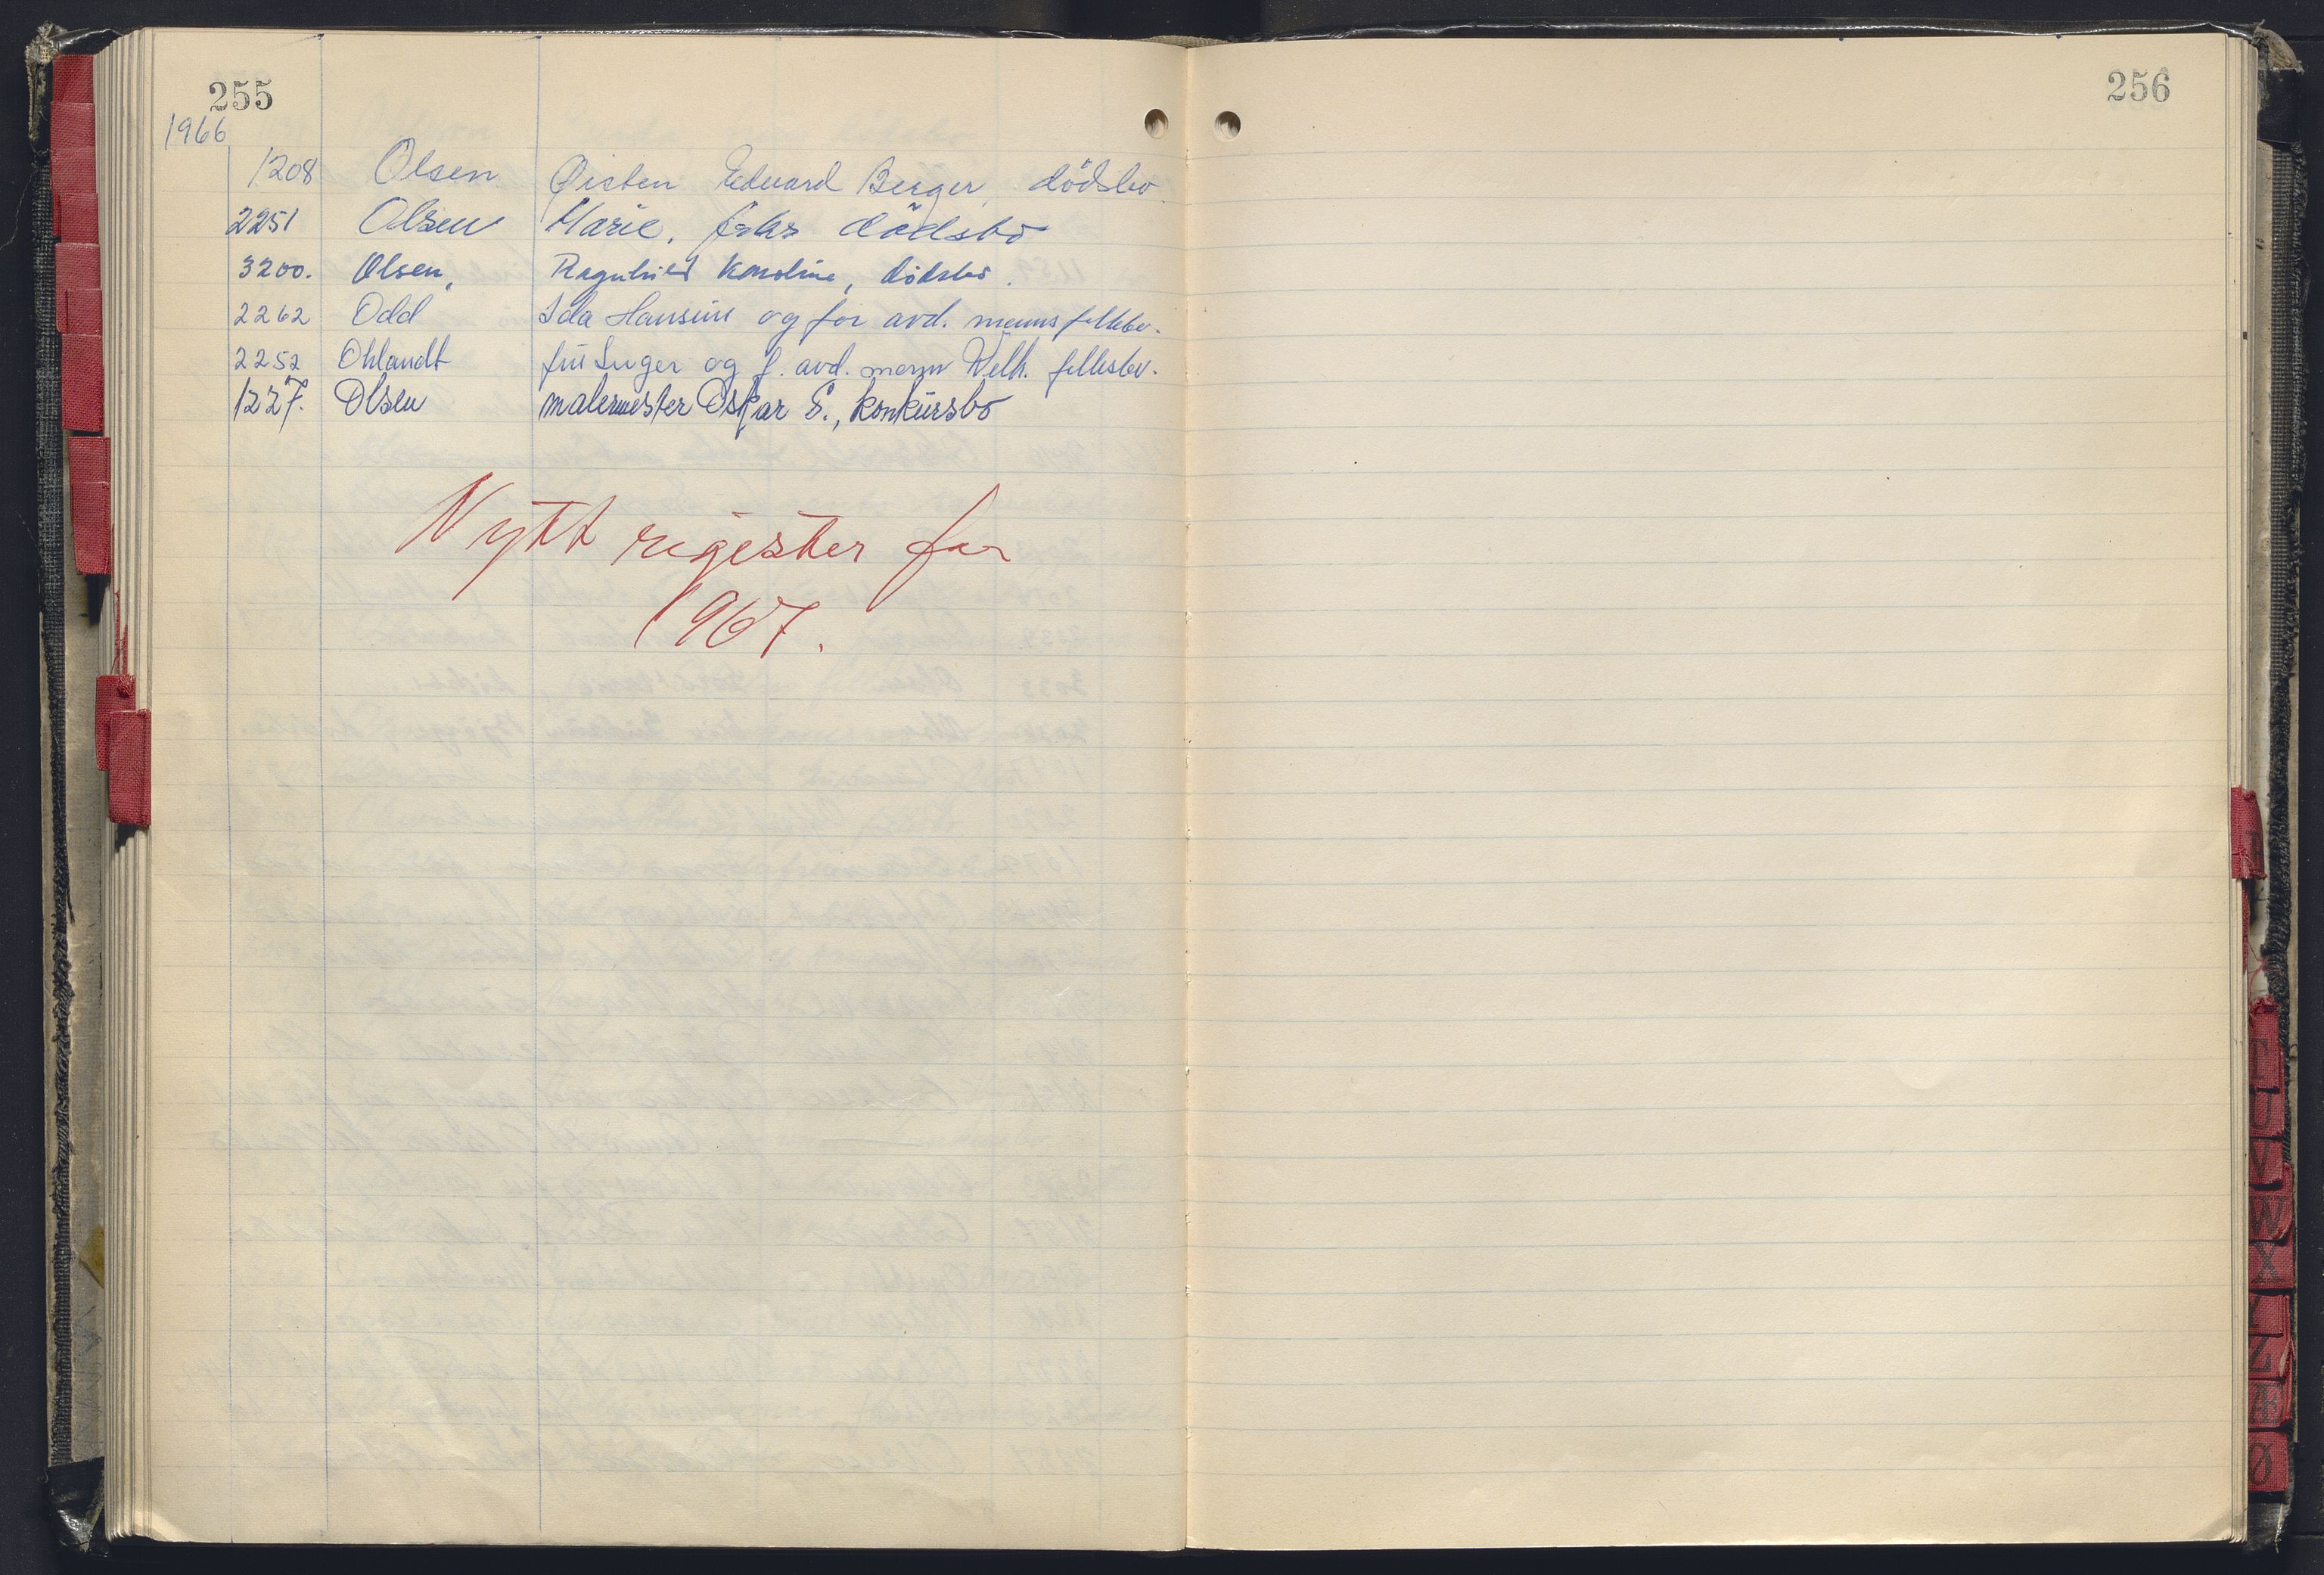 255
1966
1208 Olsen Øisten Edvard Berger, dödsbo.
2251 Olsen Marie, frk.s dödsbo
3200. Olsen, Ragnhild Karoline, dödsbo.
2262 Odd Ida Hansine og for avd. manns fellesbo.
2252 Ohlandt fru Inger og f. avd. mann Welh. fellesbo.
1227. Olsen malermester Oskar S., konkursbo
Nytt register for
1967.
256
T
U
V
W
X
Y
Z
Æ
Ø